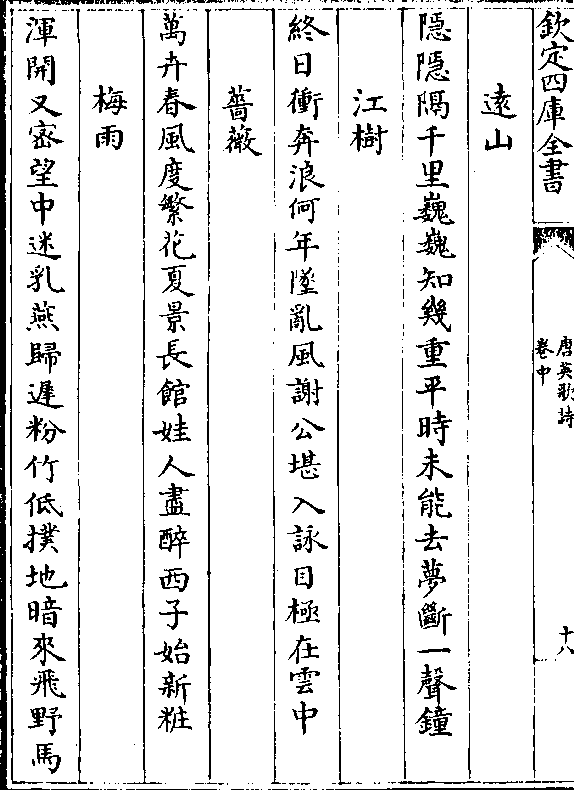 欽定四庫全書
唐英歌詩
卷中
十八
遠山
隱隱隔千里巍巍知幾重平時未能去夢斷一聲鐘
江樹
終日衝奔浪何年墜亂風謝公堪入詠目極在雲中
薔薇
萬卉春風度繁花夏景長館娃人盡醉西子始新粧
梅雨
渾開又密望中迷乳燕歸遲粉竹低撲地暗來飛野馬